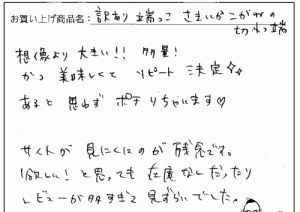 お買い上げ商品名: 訳あり 端っこ さきいか こがねの
切れっ端
想像より 大きい!! 多量!
かつ 美味しくて リピート 決定
あると 思わず ポチりちゃいます♡
サイトが 見にくいのが 残念です。
欲しい! と思っても 在庫なしだったり
レビューが多すぎて 見ずらいでした。